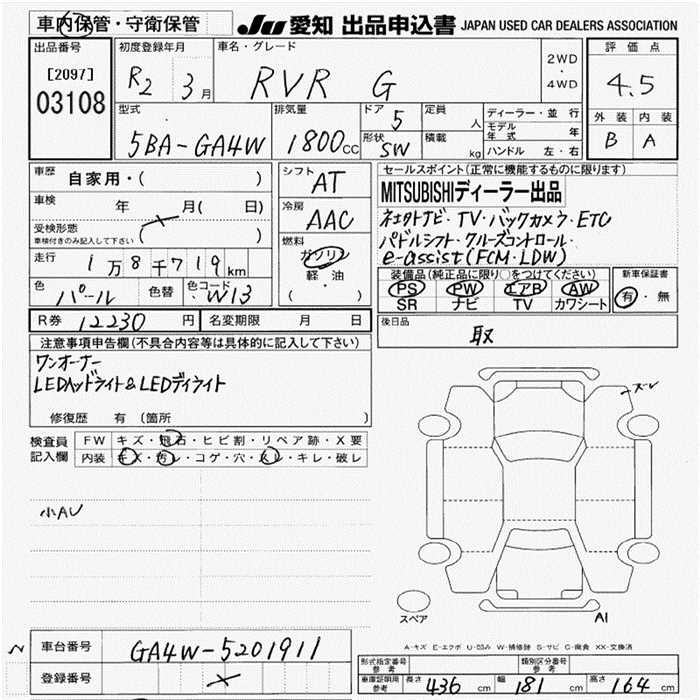 車内保管・守衛保管 JU 愛知 出品申込書 JAPAN USED CAR DEALERS ASSOCIATION
出品番号 初度登録年月 車名・グレード 評価点
[2097] R2 3月 RVR G 2WD・4WD 4.5
03108 型式 排気量 ドア 5 定員 人 ディーラー・並行 外装 内装
5BA-GA4W 1800cc 形状 SW 積載 kg モデル年式 年 B A
ハンドル 左・右
車歴 自家用・( ) シフト AT セールスポイント(正常に機能するものに限ります)
車検 年 月( 日) 冷房 AAC MITSUBISHIディーラー出品
受検形態 ( )
車検付きのみ記入して下さい
ネェクトナビ・TV・バックカメラ・ETC
走行 1万8千719km 燃料 ガソリン パドルシフト・クルーズコントロール・
軽・油 e-assist(FCM・LDW)
( )
色 パール 色替 色コード W13 装備品(純正品に限り○をつけてください) 新車保証書
PS PW エアB AW 有・無
SR ナビ TV カワシート
R券 12230円 名変期限 月 日 後日品
取
注意事項申告欄(不具合内容等は具体的に記入して下さい)
ワンオーナー
LEDヘッドライト&LEDデイライト
修復歴 有 (箇所 )
検査員記入欄 FW キズ・飛石・ヒビ割・リペア跡・X要
内装 キズ・汚レ・コゲ・穴・スレ・キレ・破レ
小AU
スペア A1
A-キズ E-エクボ U-凹み W-補修跡 S-サビ C-腐食 XX-交換済
車台番号 GA4W-5201911
登録番号
型式指定番号 参考 類別区分番号 参考
車庫証明用 参考 長さ 436cm 幅 181cm 高さ 164cm